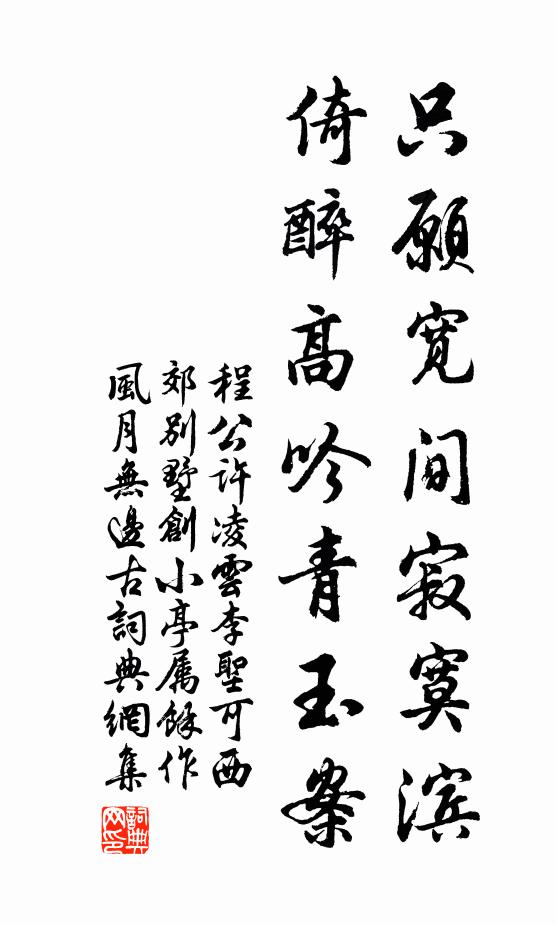 只愿宽间寂寞滨
倚醉高吟青玉案
程公許凌雲李聖可西
郊别墅創小亭属餘作
風月無邊古詞典網集
詞典网印